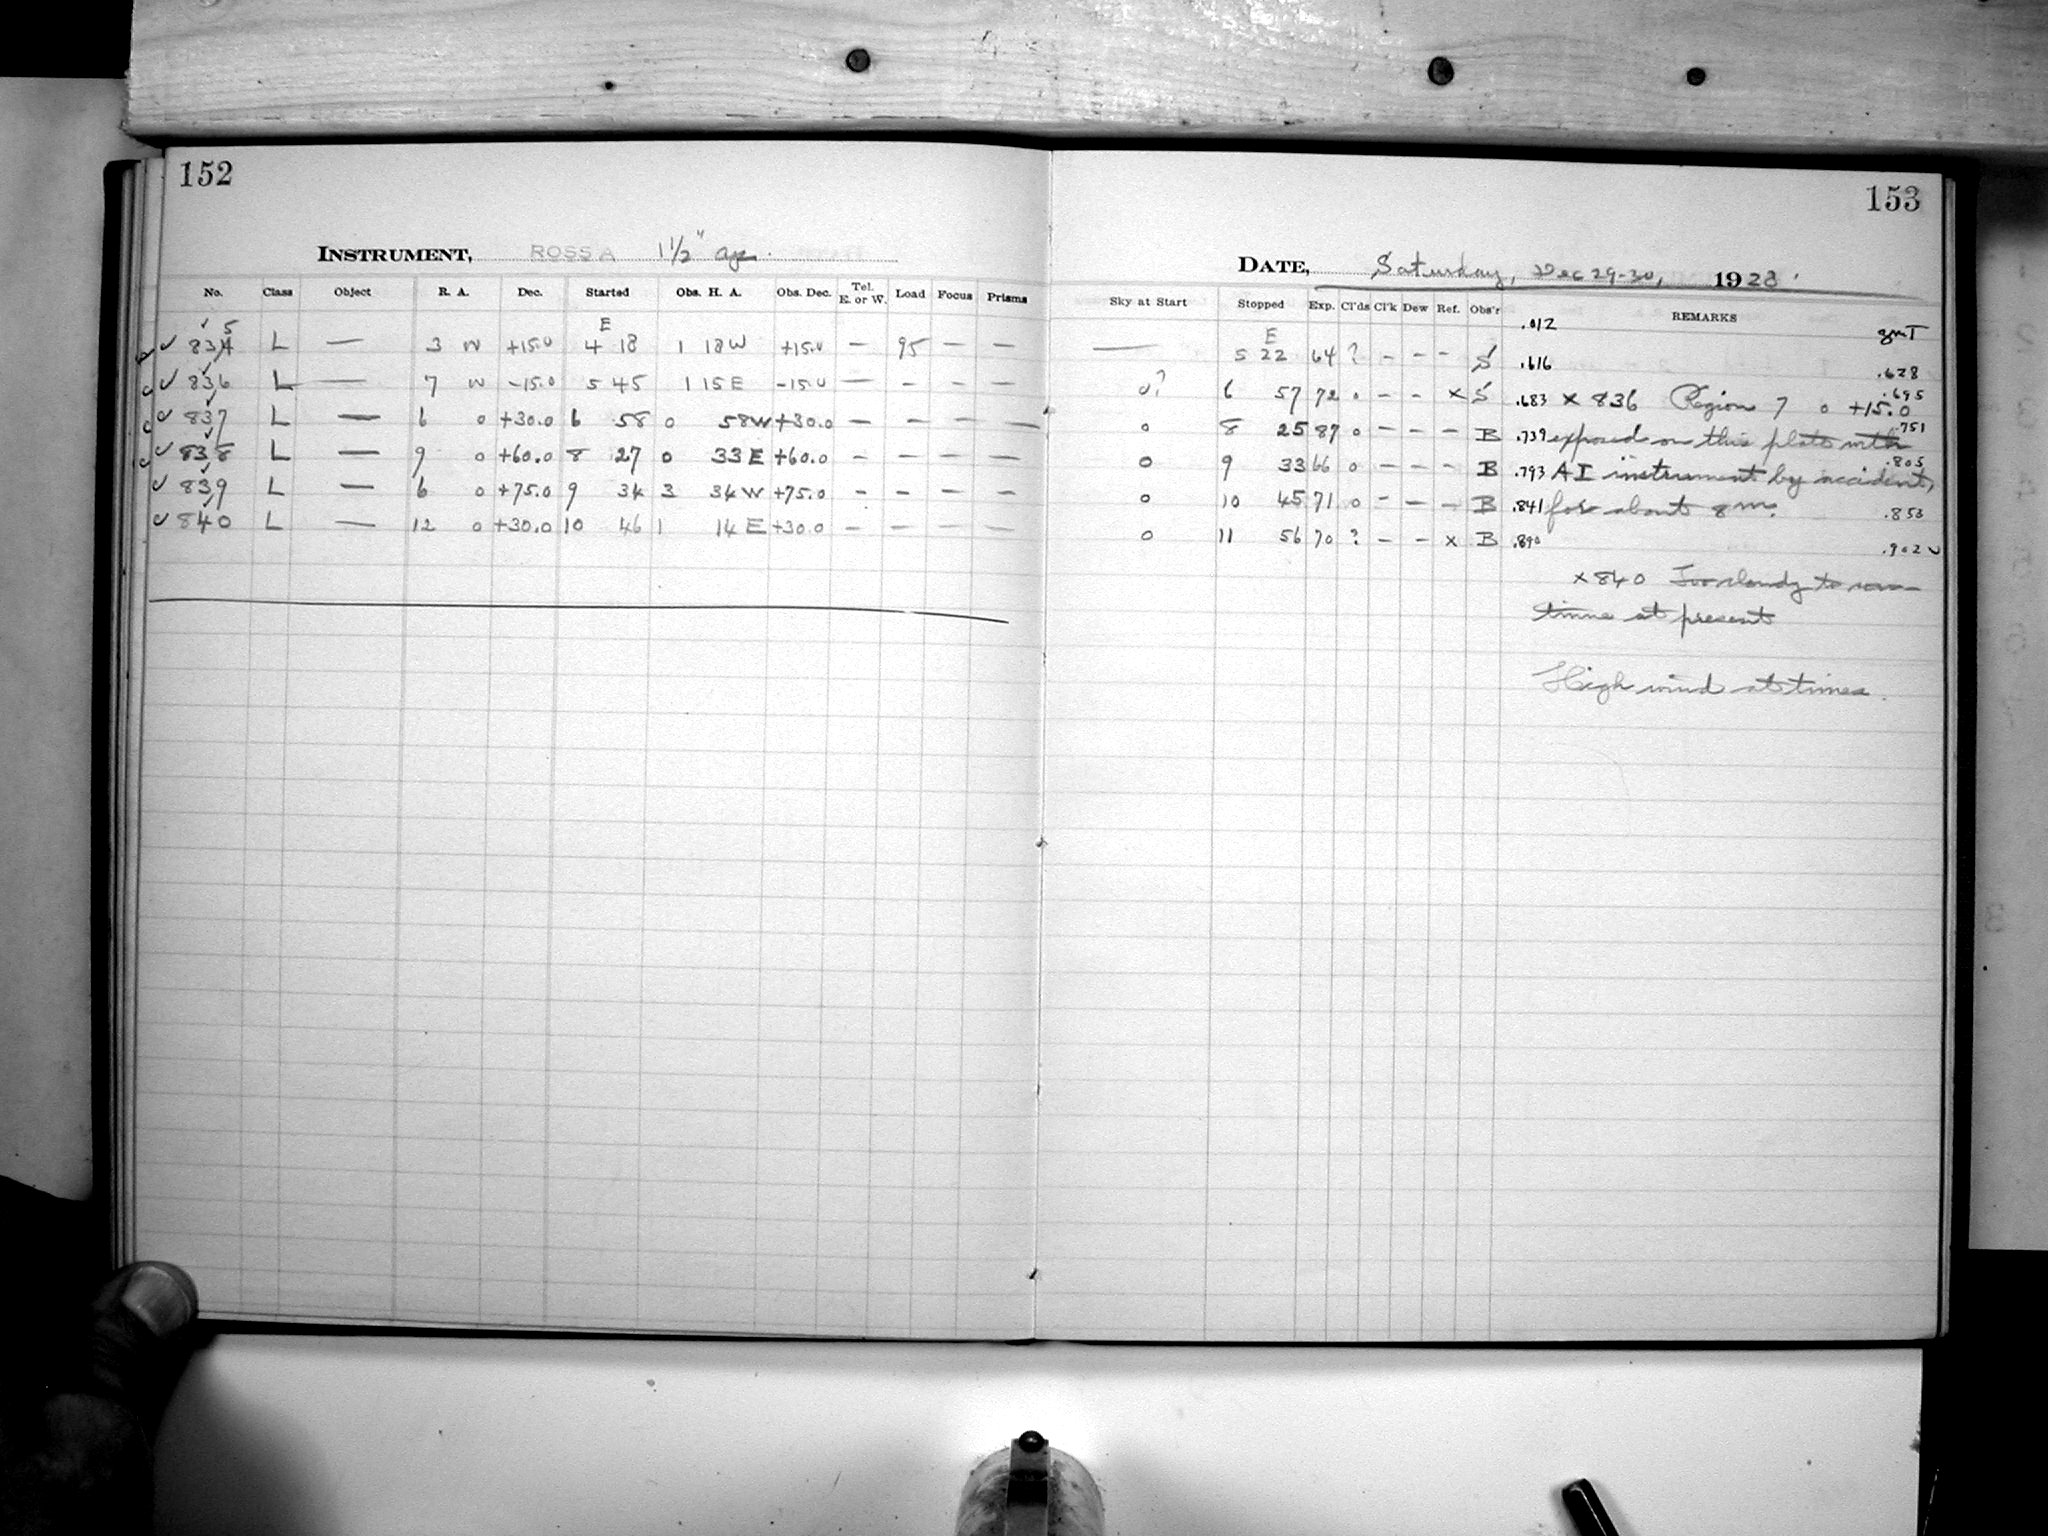 152
INSTRUMENT, ROSS A 1 1/2" ap.
No. Class Object R. A. Dec. Started Obs. H. A. Obs. Dec. Tel. E. or W. Load Focus Prisms
835 L — 3 W +15.0 E 4 18 1 18W +15.0 — 95 — —
836 L — 7 W -15.0 5 45 1 15 E -15.0 — - — —
837 L — 6 0 +30.0 6 58 0 58W +30.0 — — — —
838 L — 9 0 +60.0 8 27 0 33 E +60.0 — — — —
839 L — 6 0 +75.0 9 34 3 34W +75.0 — — — —
840 L — 12 0 +30.0 10 46 1 14 E +30.0 — — — —
153
DATE, Saturday, Dec 29-30, 1928.
Sky at Start Stopped Exp. Cl'ds Cl'k Dew Ref. Obs'r REMARKS
.012 GMT
— E 5 22 64 ? - - - S .616 .628
0? 6 57 72 0 - - x S .683 x 836 Region 7 0 +15.0 .695
0 8 25 87 0 - - - B .739 exposed on this plate with .751
0 9 33 66 0 - - - B .793 AI instrument by accident, .805
0 10 45 71 0 - - - B .841 for about 8m. .853
0 11 56 70 ? - - x B .890 .902
x 840 Too cloudy to con-
tinue at present
High wind at times.